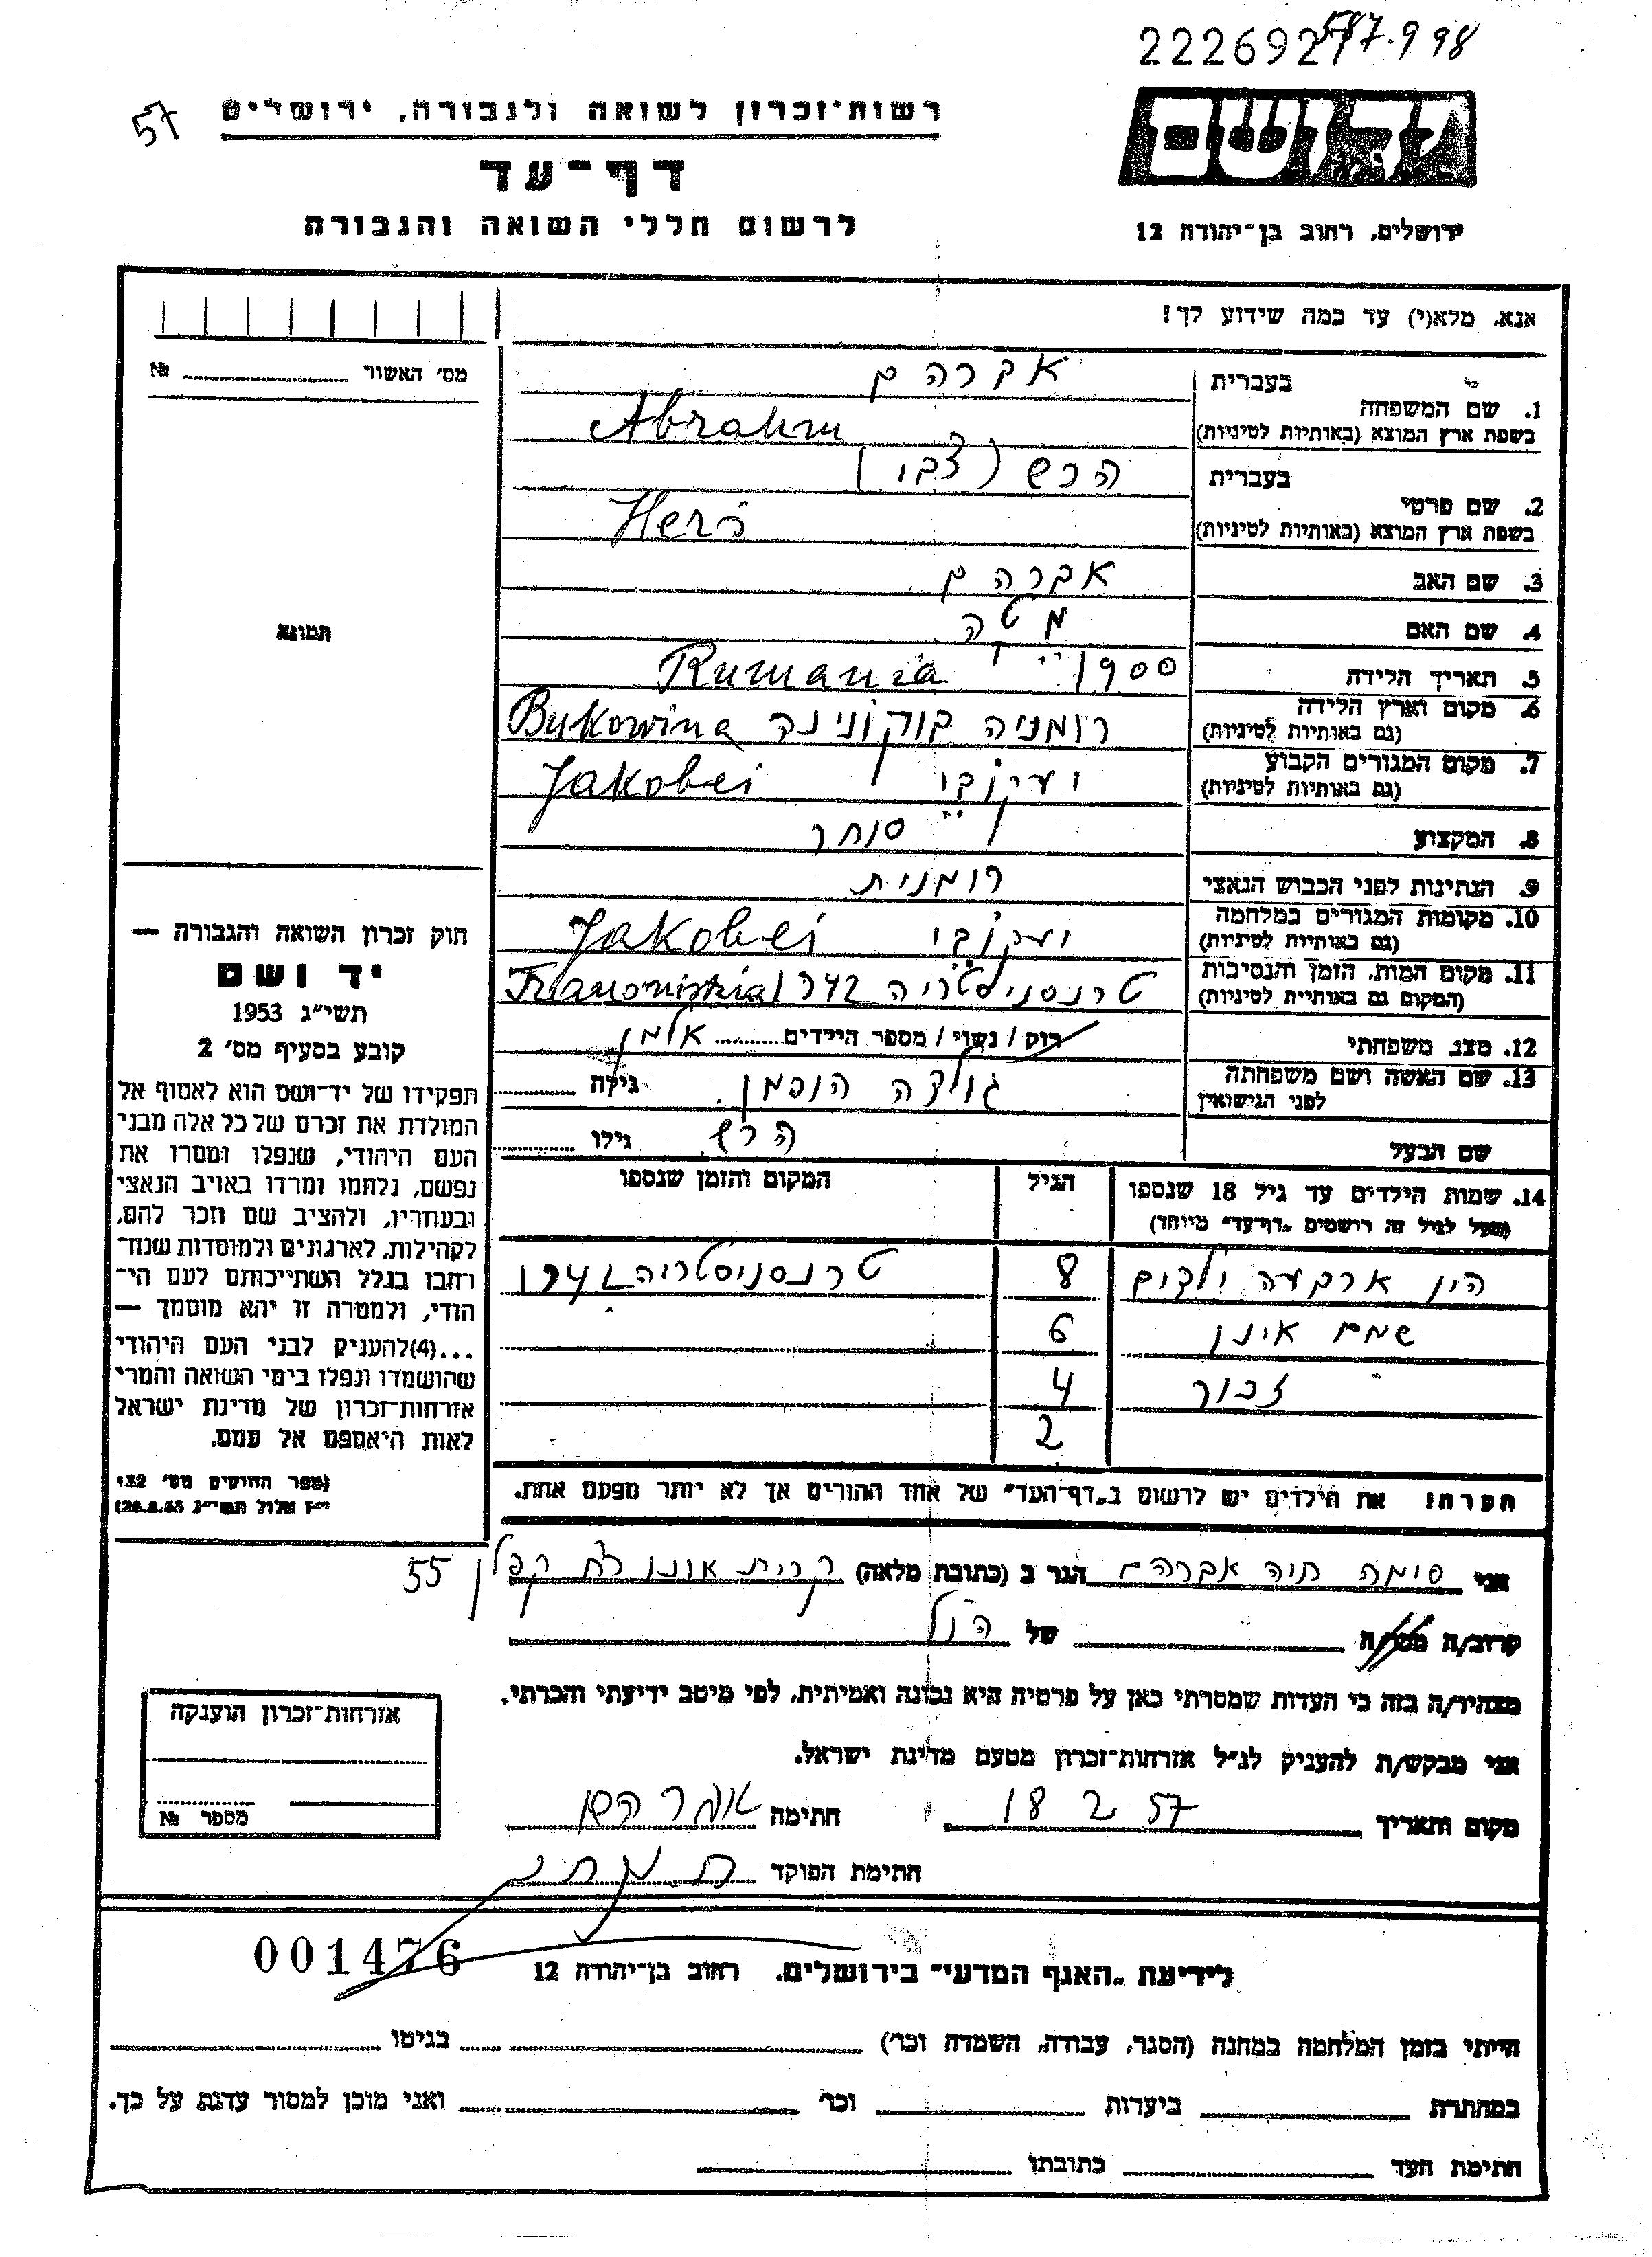 2226927
587.998
57
רשות־זכרון לשואה ולגבורה, ירושלים
דף־עד
לרשום חללי השואה והגבורה
ירושלים, רחוב בן־יהודה 12
אנא, מלא(י) עד כמה שידוע לך!
מס׳ האשור № 
בעברית אברהם
1. שם המשפחה
בשפת ארץ המוצא (באותיות לטיניות) Abrahm
בעברית הרש (צבי)
2. שם פרטי
בשפת ארץ המוצא (באותיות לטיניות) Herş
3. שם האב אברהם
4. שם האם מטה
תמונה
5. תאריך הלידה 1900 Rumania
6. מקום וארץ הלידה
(גם באותיות לטיניות) רומניה בוקובינה Bukowina
7. מקום המגורים הקבוע
(גם באותיות לטיניות) יעקובי Jakobei
8. המקצוע סוחר
9. הנתינות לפני הכבוש הנאצי רומנית
10. מקומות המגורים במלחמה
(גם באותיות לטיניות) יעקובי Jakobei
11. מקום המות, הזמן והנסיבות
(המקום גם באותיות לטיניות) טרנסניסטריה 1942
12. מצב משפחתי רוק / נשוי / מספר הילדים
13. שם האשה ושם משפחתה
לפני הנישואין גולדה הופמן גילה
שם הבעל הרש גילו
14. שמות הילדים עד גיל 18 שנספו
(מעל לגיל זה רושמים „דף־עד” מיוחד)
הגיל
המקום והזמן שנספו
היו ארבעה ילדים 8 טרנסניסטריה 1942
שמם אינן 6
זכור 4
2
הערה! את הילדים יש לרשום ב„דף־העד” של אחד ההורים אך לא יותר מפעם אחת.
חוק זכרון השואה והגבורה —
יד ושם
תשי״ג 1953
קובע בסעיף מס׳ 2
תפקידו של יד־ושם הוא לאסוף אל
המולדת את זכרם של כל אלה מבני
העם היהודי, שנפלו ומסרו את
נפשם, נלחמו ומרדו באויב הנאצי
ובעוזריו, ולהציב שם וזכר להם,
לקהילות, לארגונים ולמוסדות שנח־
רחבו בגלל השתייכותם לעם הי־
הודי, ולמטרה זו יהא מוסמך —
...(4)להעניק לבני העם היהודי
שהושמדו ונפלו בימי השואה והמרי
אזרחות־זכרון של מדינת ישראל
לאות היאספם אל עמם.
(ספר החוקים מס׳ 132
י״ז אלול תשי״ג 28.8.53)
אני סימה חיה אברהם הגר ב (כתובת מלאה) קרית אונו רח קפלן 55
קרוב/ה מכר/ה של הנ״ל
מצהיר/ה בזה כי העדות שמסרתי כאן על פרטיה היא נכונה ואמיתית, לפי מיטב ידיעתי והכרתי.
אני מבקש/ת להעניק לנ״ל אזרחות־זכרון מטעם מדינת ישראל.
מקום ותאריך 18 2 57 חתימה
חתימת הפוקד
אזרחות־זכרון הוענקה
מספר №
001476
לידיעת „האגף המדעי” בירושלים. רחוב בן־יהודה 12
הייתי בזמן המלחמה במחנה (הסגר, עבודה, השמדה וכו׳) בגיטו
במחתרת ביערות וכו׳ ואני מוכן למסור עדות על כך.
חתימת העד כתובתו